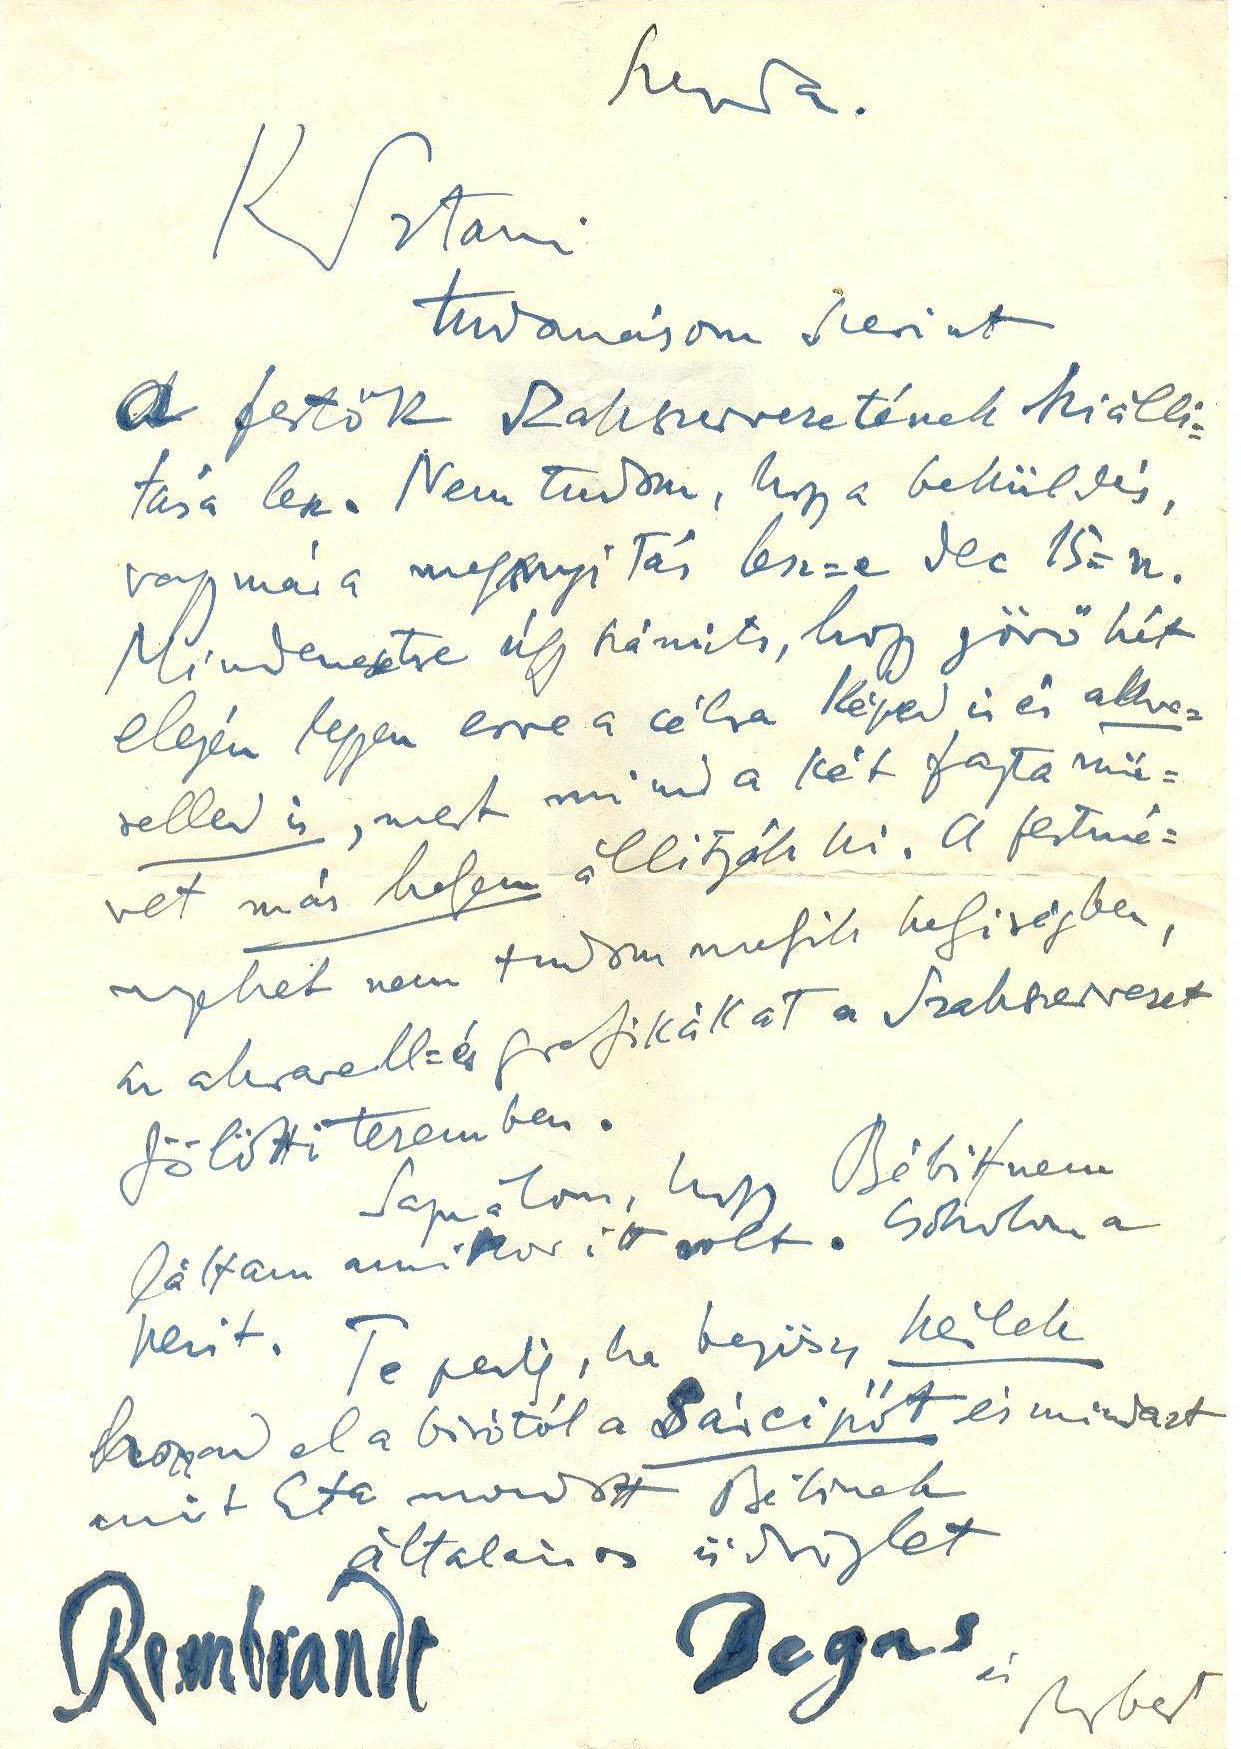 Szerda.
K Sztani
tudomásom szerint
a festők szakszervezetének kiálli=
tása lesz. Nem tudom, hogy a beküldés,
vagy már a megnyitás lesz=e dec 15=n.
Mindenesetre úgy számits, hogy jövő hét
elején legyen erre a célra képed is és akva=
relled is, mert mind a két fajta mü=
vet más helyen állitják ki. A festmé=
nyeket nem tudom melyik helyiségben,
az akvarell= és grafikákat a Szakszervezet
fölötti teremben.
Sajnálom, hogy Bébit nem
láttam amikor itt volt. Csókolom a
kezit. Te pedig, ha bejössz,
hozad el a birótól a Sárcipőt és mindazt
mit Eta mondott Bébinek
általános üdvözlet
Rembrandt Degas
és